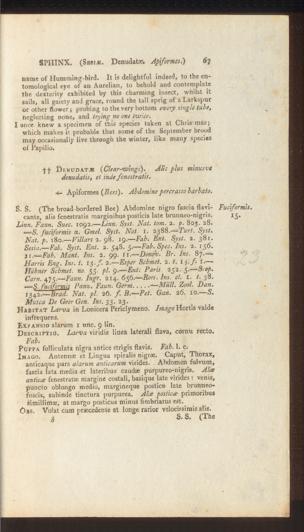 SPHINX. (SESIÆ. Denudatæ. Apiformes.) 63
name of Humming-bird. It is delightful indeed, to the en-
tomological eye of an Aurelian, to behold and contemplate
the dexterity exhibited by this charming insect, whilst it
sails, all gaiety and grace, round the tall sprig of a Larkspur
or other flower; probing to the very bottom every single tube,
neglecting none, and trying no one twice.
I once knew a specimen of this species taken at Christmas;
which makes it probable that some of the September brood
may occasionally live through the winter, like many species
of Papilio.
†† DENUDATÆ (Clear-wings). Alis plus minusve
denudatis, et inde fenestratis.
Apiformes (Bees). Abdomine percrasso barbato.
S. S. (The broad-bordered Bee) Abdomine nigro fascia flavi- Fuciformis.
cante, alis fenestratis marginibus posticis late brunneo-nigris. 15.
Linn. Faun. Suec. 1092.—Linn. Syst. Nat. tom. 2. p. 803. 28.
—S. fuciformis n. Gmel. Syst. Nat. 1. 2388.—Turt. Syst.
Nat. p. 180.—Villars 2. 98. 19.—Fab. Ent. Syst. 2. 381.
Sesia.—Fab. Syst. Ent. 2. 548. 5.—Fab. Spec. Ins. 2. 156.
21.—Fab. Mant. Ins. 2. 99. 11.—Donov. Br. Ins. 87.—
Harris Eng. Ins. t. 15. f. 2.—Esper Schmet. 2. t. 15. f. 1.—
Hübner Schmet. no. 55. pl. 9.—Ent: Paris 252. 5.—Scop.
Carn. 475.—Faun. Ingr. 214. 656.—Berl. Ins. ed. 1. t. 38.
—S. fuciformis Panz. Faun. Germ. . . . .—Müll. Zool. Dan.
1342.—Brad. Nat. pl. 26. f. B.—Pet. Gaz. 26. 10.—S.
Musca De Geer Gen. Ins. 33. 23.
HABITAT Larva in Lonicera Periclymeno. Imago Hortis valde
infrequens.
EXPANSIO alarum 1 unc. 9 lin.
DESCRIPTIO. Larva viridis linea laterali flava, cornu recto.
Fab.
PUPPA folliculata nigra antice strigis flavis. Fab. l. c.
IMAGO. Antennæ et Lingua spiralis nigræ. Caput, Thorax,
anticaque pars alarum anticarum virides. Abdomen fulvum,
fascia lata media et lateribus caudæ purpureo-nigris. Alæ
anticæ fenestratæ margine costali, basique late virides: venis,
puncto oblongo medio, margineque postico late brunneo-
fuscis, subinde tinctura purpurea. Alæ posticæ primoribus
simillimæ, at margo posticus minus fimbriatus est.
OBS. Volat cum præcedente et longe rarior velocissimis alis.
8 S. S. (The
23